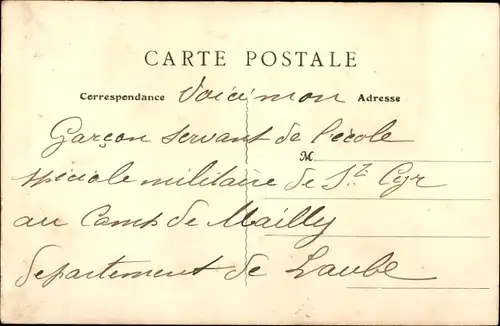 CARTE POSTALE
Correspondance Voici mon Adresse
Garçon servant de l'école
M
spéciale militaire de St Cyr
au Camp de Mailly
departement de Laube